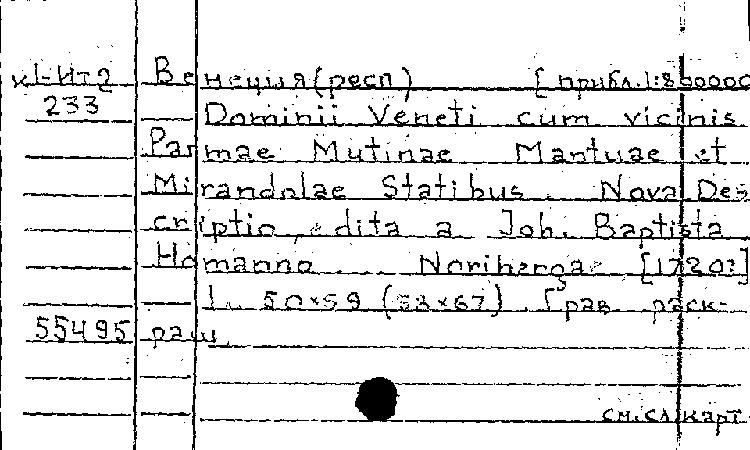 к1-Ит2 Венеция (респ) [прибл. 1:800000
233 Dominii Veneti cum vicinis
Parmae Mutinae Mantuae et
Mirandolae Statibus. Nova Des
criptio, edita a Joh. Baptista
Homanno. Noribergae [1720?]
1. 50×59 (53×67). Грав. раск-
55495 раш.
см. сл. карт